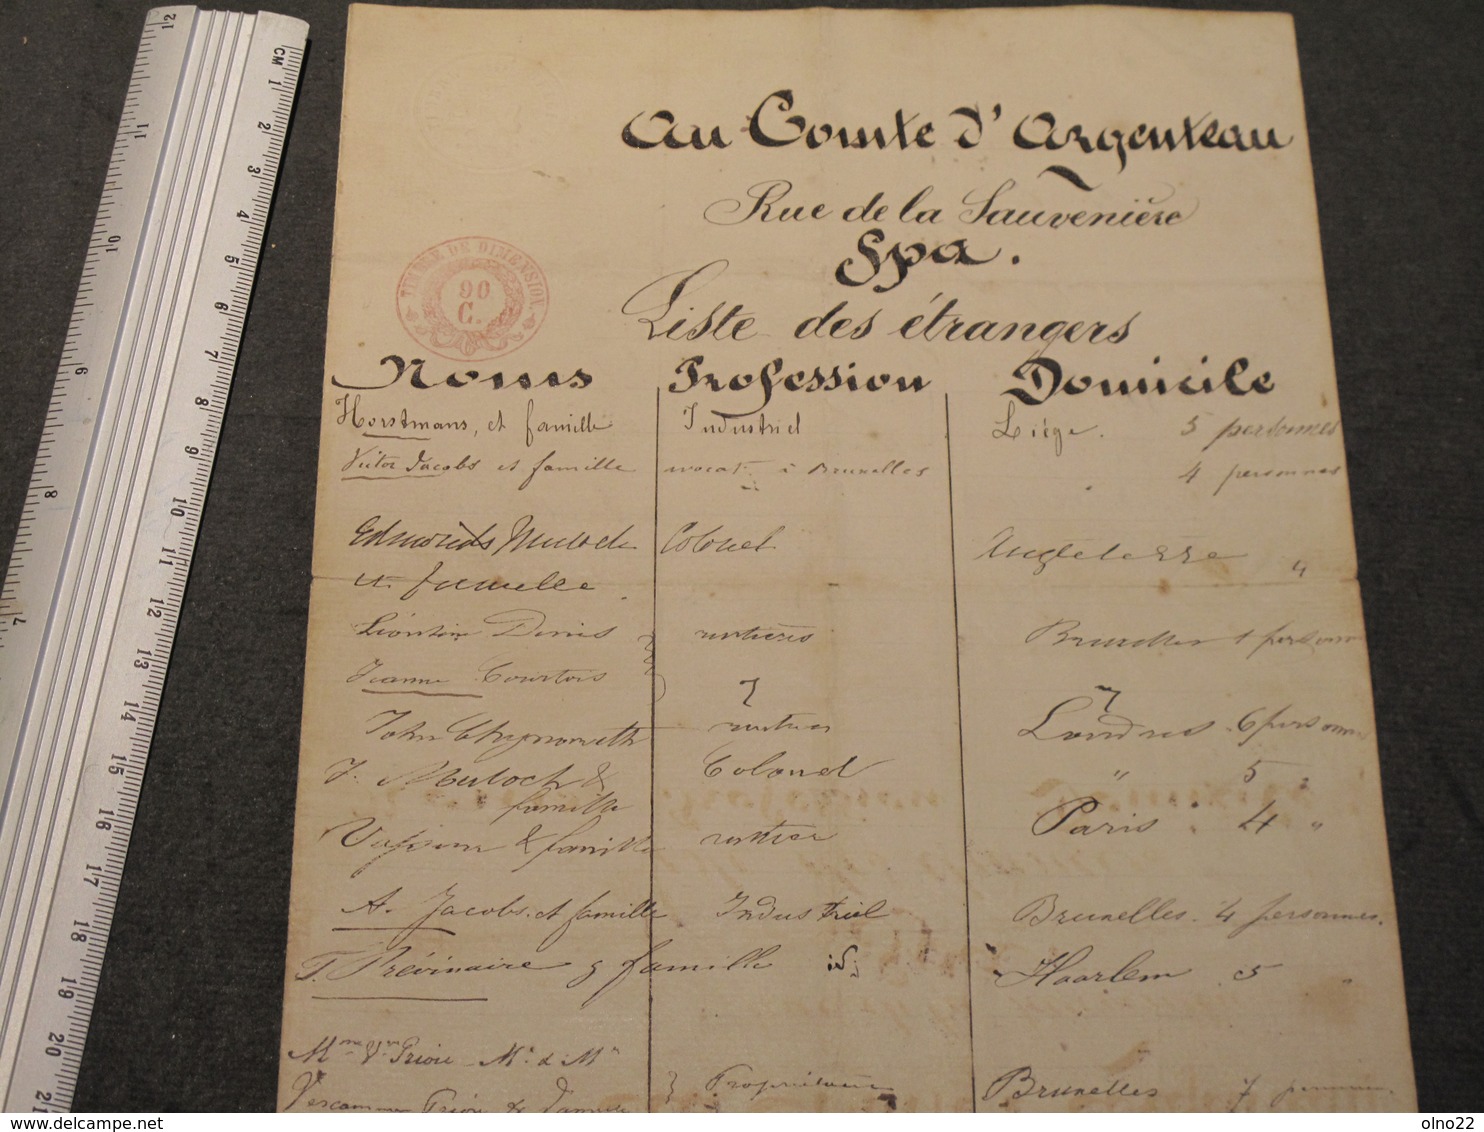 Au Comte d'Argenteau
Rue de la Sauvenière
Spa.
TIMBRE DE DIMENSION
90
C.
Liste des étrangers
Noms Profession Domicile
Horstmans, et famille Industriel Liège. 5 personnes
Victor Jacobs et famille avocat à Bruxelles 4 personnes
Edmonds Colonel Angleterre 4
et famille.
Léontine Denis rentières Bruxelles 1 personne
Jeanne Courtois
John rentier Londres 6 personnes
J. Muloch & Colonel " 5 "
famille
& famille rentier Paris 4 "
A. Jacobs et famille Industriel Bruxelles. 4 personnes.
T. Prévinaire & famille id. Haarlem 5 "
Mme Vve Prion Mr & Mme
Propriétaire Bruxelles 7
Prion & famille
CM 1 2 3 4 5 6 7 8 9 10 11 12 13 14 15 16 17 18 19 20 21
12 11 10 9 8 7
olno22